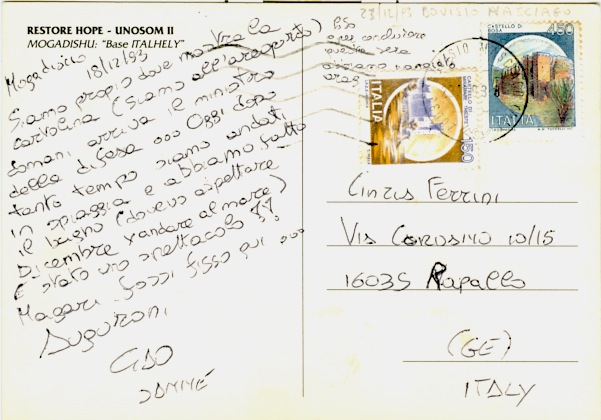 RESTORE HOPE - UNOSOM II
MOGADISHU: "Base ITALHELY"
Mogadiscio 18/12/93
Siamo proprio dove mostra la
cartolina (siamo all'areoporto)
domani arriva il ministro
della difesa ooo Oggi dopo
tanto tempo siamo andati
in spiaggia e abbiamo fatto
il bagno (dovevo aspettare
Dicembre x andare al mare)
È stato uno spettacolo !!
Magari fossi fisso qui ooo
Auguroni
CIAO
23/12/93 BOVISIO MASCIAGO
abbiamo mangiato
CASTELLO DI BOSA
450
ITALIA
ITALIA
150
Cinzia Ferrini
Via Cerosimo 10/15
16035 Rapallo
(GE)
ITALY